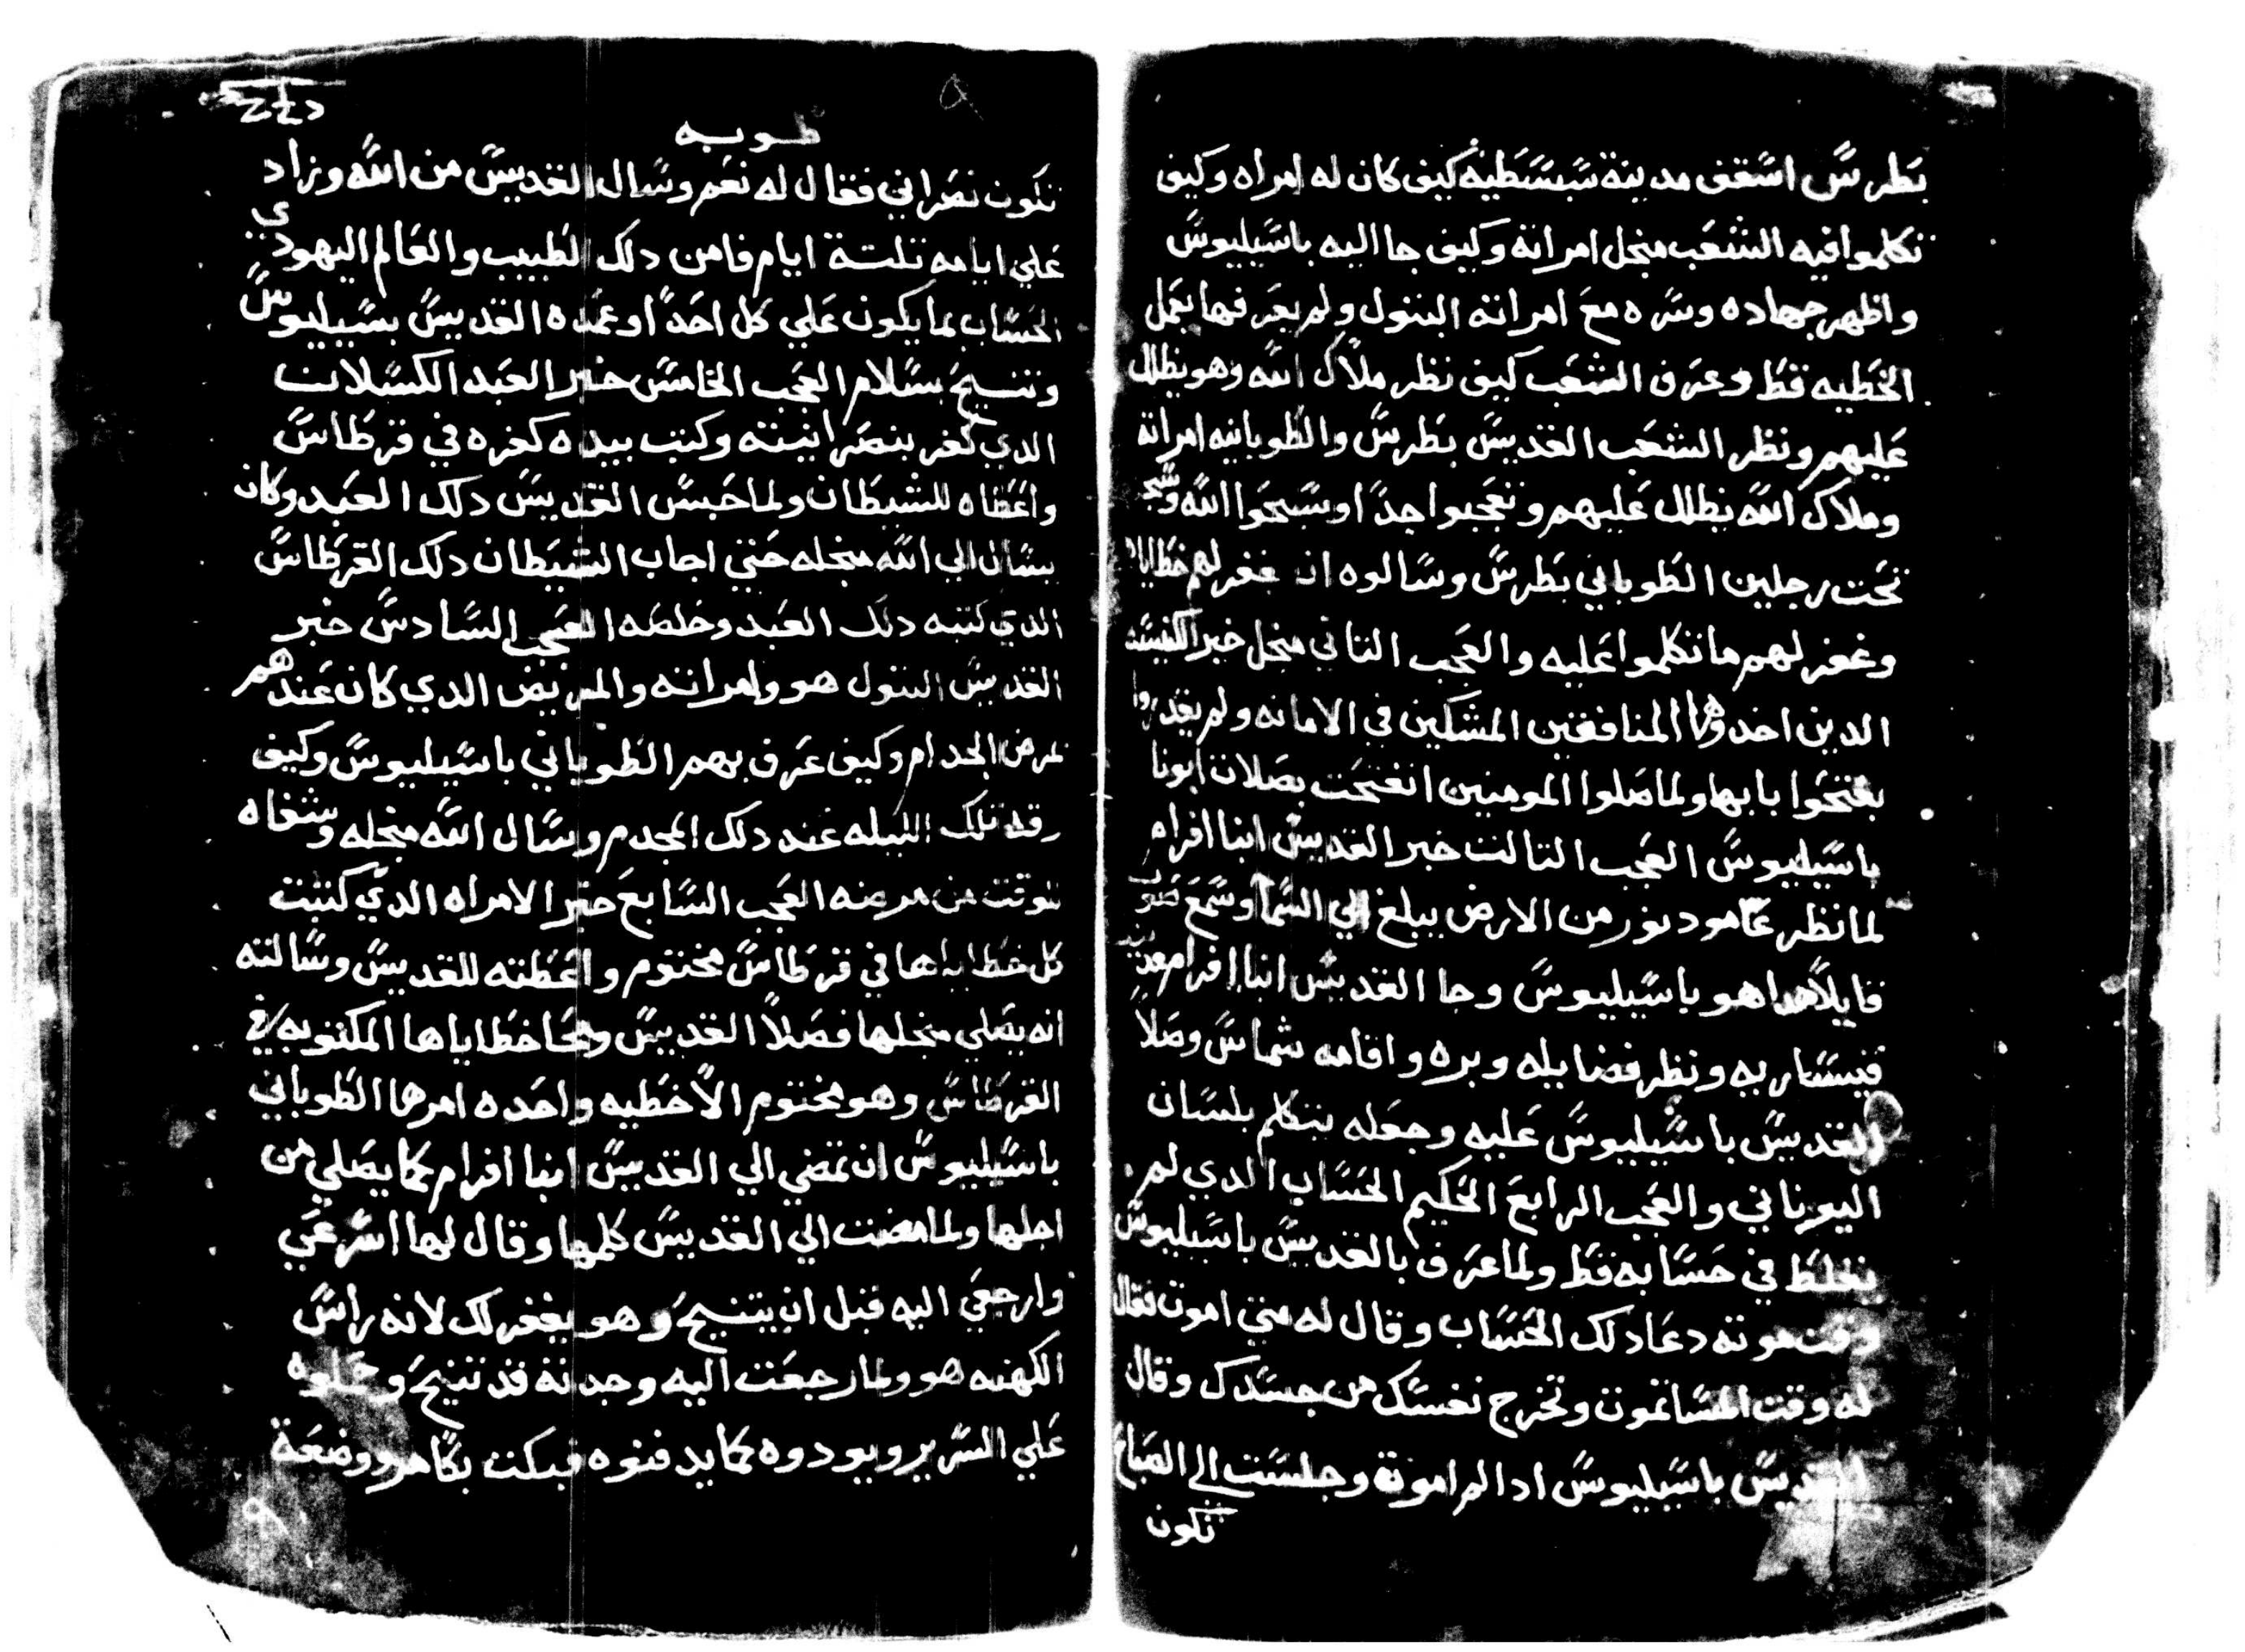 بطرس اسقف مدينة سبسطيه كيف كان له امراه وكيف
تكلموا فيه الشعب منجل امراته وكيف جا اليه باسيليوس
واظهر جهاده وسره مع امراته البتول ولم يعرفها بعمل
الخطيه قط وعرف الشعب كيف نظر ملاك الله وهو يظلل
عليهم ونظر الشعب القديس بطرس والطوبانيه امراته
وملاك الله يظلل عليهم وتعجبوا جدا وسبحوا الله
تحت رجلين الطوباني بطرس وسالوه ان يغفر لهم خطاياهم
وغفر لهم ما تكلموا عليه والعجب التاني منجل خبر الكنيسه
الدين اخدوها المنافقين المشكين في الامانه ولم يقدروا
يفتحوا بابها ولما صلوا المومنين انفتحت بصلات ابونا
باسيليوس العجب التالت خبر القديس انبا افرام
لما نظر عامود نور من الارض يبلغ الي السما وسمع صوت
قايلا هدا هو باسيليوس وجا القديس انبا افرام
قيساريه ونظر فضايله وبره واقامه شماس وصلا
القديس باسيليوس عليه وجعله يتكلم بلسان
اليوناني والعجب الرابع الحكيم الحساب الدي لم
يغلط في حسابه قط ولما عرف بالقديس باسيليوس
وقت موته دعا دلك الحساب وقال له متي اموت فقال
له وقت المسا تموت وتخرج نفسك من جسدك وقال
القديس باسيليوس ادا لم اموت وجلست الي الصباح
تكون
طوبه
تكون نصراني فقال له نعم وسال القديس من الله وزاد
علي ايامه تلتة ايام فامن دلك الطبيب والعالم اليهودي
الحساب بما يكون علي كل احدا وعمده القديس بسيليوس
وتنيح بسلام العجب الخامس خبر العبد الكسلان
الدي كفر بنصرانيته وكتب بيده كفره في قرطاس
واعطاه للشيطان ولما حبس القديس دلك العبد وكان
يسال الي الله منجله حتي اجاب الشيطان دلك القرطاس
الدي كتبه دلك العبد وخلصه العجب السادس خبر
القديس البتول هو وامراته والمريض الدي كان عندهم
بمرض الجدام وكيف عرف بهم الطوباني باسيليوس وكيف
رقد تلك الليله عند دلك المجدم وسال الله منجله وشفاه
للوقت من مرضه العجب السابع خبر الامراه الدي كتبت
كل خطاياها في قرطاس مختوم واعطته للقديس وسالته
انه يصلي منجلها فصلا القديس ومحا خطاياها المكتوبه في
القرطاس وهو مختوم الا خطيه واحده امرها الطوباني
باسيليوس ان تمضي الي القديس انبا افرام كما يصلي من
اجلها ولما مضت الي القديس كلمها وقال لها اسرعي
وارجعي اليه قبل ان يتنيح وهو يغفر لك لانه راس
الكهنه هو ولما رجعت اليه وجدته قد تنيح وحملوه
علي السرير ويودوه كما يدفنوه فبكت بكا مر ووضعة